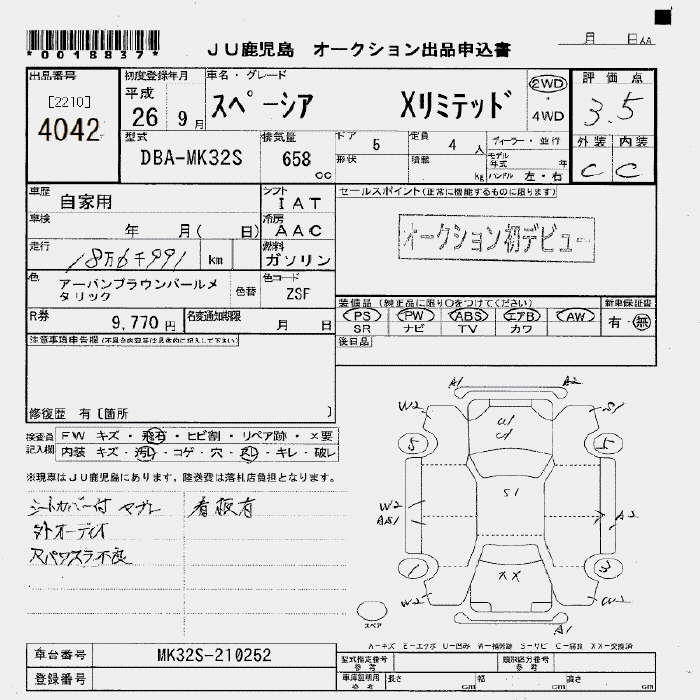 *0018837*
JU鹿児島 オークション出品申込書
月 日
出品番号
[2210]
4042
初度登録年月
平成
26 9月
車名・グレード
スペーシア Xリミテッド
2WD
・
4WD
評価点
3.5
外装 内装
C C
型式
DBA-MK32S
排気量
658
cc
ドア 5
形状
定員 4 人
積載 kg
ディーラー・並行
モデル年式 年
ハンドル 左・右
車歴
自家用
シフト
IAT
車検
年 月( 日)
冷房
AAC
走行
18万6千991 km
燃料
ガソリン
色
アーバンブラウンパールメタリック
色替
色コード
ZSF
R券
9,770円
名変通知期限
月 日
セールスポイント(正常に機能するものに限ります)
オークション初デビュー
装備品(純正品に限り○をつけてください)
新車保証書
PS PW ABS エアB AW
SR ナビ TV カワ
有・無
後日品
注意事項申告欄(不具合内容等は具体的に記入して下さい)
修復歴 有〔箇所 〕
検査員記入欄
FW キズ・飛石・ヒビ割・リペア跡・X要
内装 キズ・汚レ・コゲ・穴・スレ・キレ・破レ
※現車はJU鹿児島にあります。陸送費は落札店負担となります。
シートカバー付 マブレ 看板有
社外オーディオ
R.パワスラ不良
A1 A2
W2 S1
5 5
S1
W2
A2
1 3
XX
W2
A1
スペア
A-キズ E-エクボ U-凹み W-補修跡 S-サビ C-腐食 XX-交換済
車台番号
MK32S-210252
登録番号
型式指定番号
参考
類別区分番号
参考
車庫証明用
参考
長さ cm 幅 cm 高さ cm